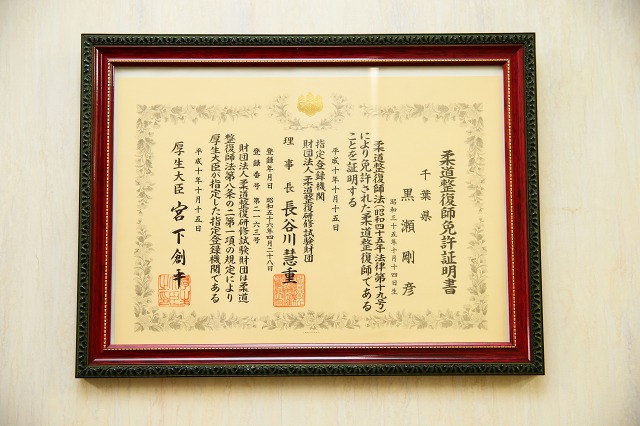 柔道整復師免許証明書
千葉県
黒瀬剛彦
昭和三十五年十月十四日生
柔道整復師法(昭和四十五年法律第十九号)
により免許された柔道整復師である
ことを証明する
平成十年十月十五日
指定登録機関
財団法人柔道整復研修試験財団
理事長 長谷川慧重
登録年月日 昭和五十六年四月二十八日
登録番号 第一二一六三号
財団法人柔道整復研修試験財団は柔道
整復師法第八条の二第一項の規定により
厚生大臣が指定した指定登録機関である
平成十年十月十五日
厚生大臣 宮下創平